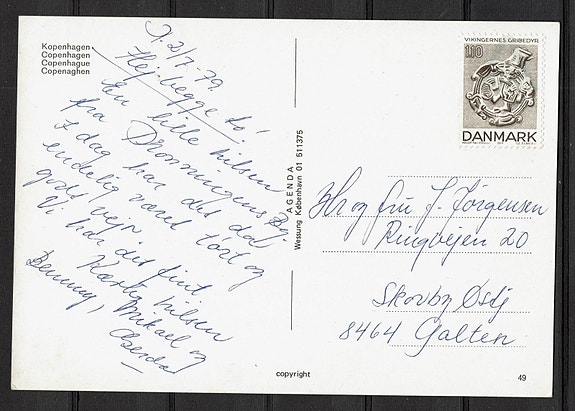 Kopenhagen
Copenhagen
Copenhague
Copenaghen
D. 2/7-79
Hej begge to!
En lille hilsen
fra Dronningens By.
I dag har det da
endelig været tørt og
godt vejr.
Vi har det fint.
Kærlig hilsen
Benny, Mikael og
AGENDA
Wessung København 01 511375
VIKINGERNES GRIBEDYR
110
DANMARK
Hr og fru J. Jørgensen
Ringvejen 20
Skovby Østj
8464 Galten
copyright
49